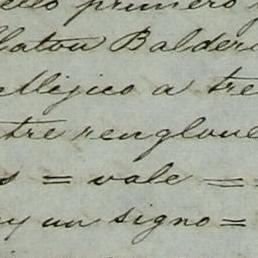 primero
llaton Balder
Mejico a tre
tre renglone
s = vale =
y un signo =